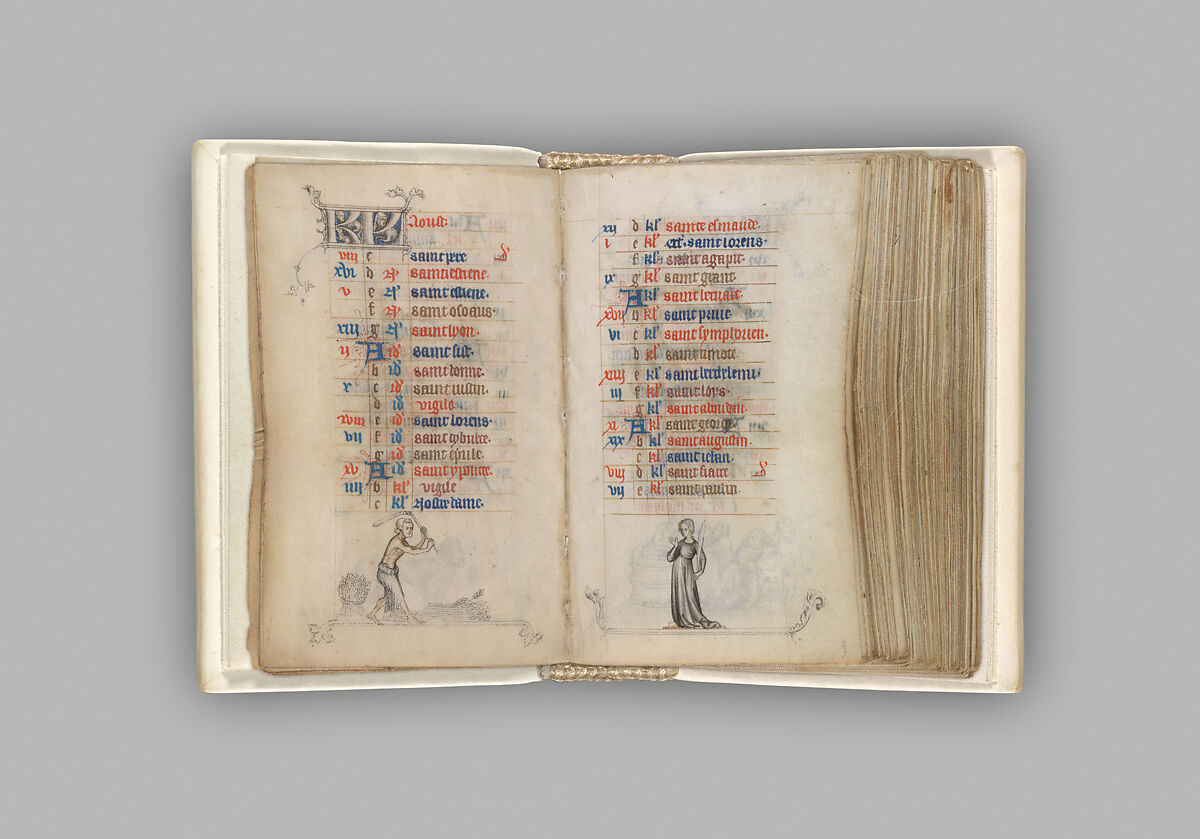 KL Aoust.
viii c saint pere
xvi d iiii saint estiene.
v e iii saint estiene.
f ii saint osoaus.
xiii g saint lyon.
ii A id saint sist.
b id saint donne.
x c id saint iustin.
d id vigile
xviii e id saint lorens.
vii f id saint tyburce.
g id saint
xv A id saint ypolite.
iiii b kl vigile
c kl Nostre dame.
xii d kl sainte
i e kl oct. saint lorens.
f kl saint agapit.
ix g kl saint
A kl saint bernart.
xvii b kl saint priue.
vi c kl saint symphorien.
d kl saint timote.
xiiii e kl saint bertelemi.
iii f kl saint loys.
g kl saint
xi A kl saint george.
xix b kl saint augustin.
c kl saint iehan.
viii d kl saint fiacre
vii e kl saint paulin.
9